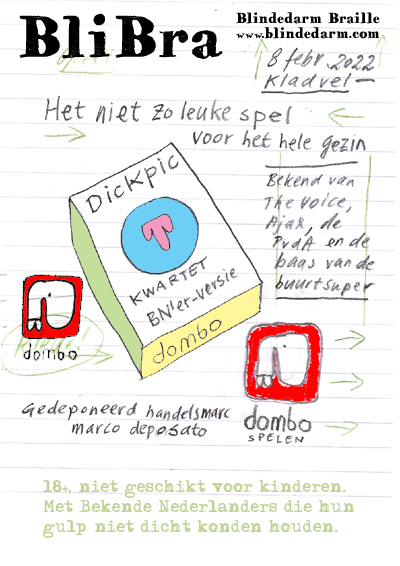 BliBra
Blindedarm Braille
www.blindedarm.com
8 febr. 2022
Kladvel
Het niet zo leuke spel
voor het hele gezin
Bekend van
The Voice,
Ajax, de
PvdA en de
baas van de
buurtsuper
Dickpic
KWARTET
BN'er-versie
dombo
dombo
dombo
SPELEN
Gedeponeerd handelsmarc
marco deposato
18+, niet geschikt voor kinderen.
Met Bekende Nederlanders die hun
gulp niet dicht konden houden.